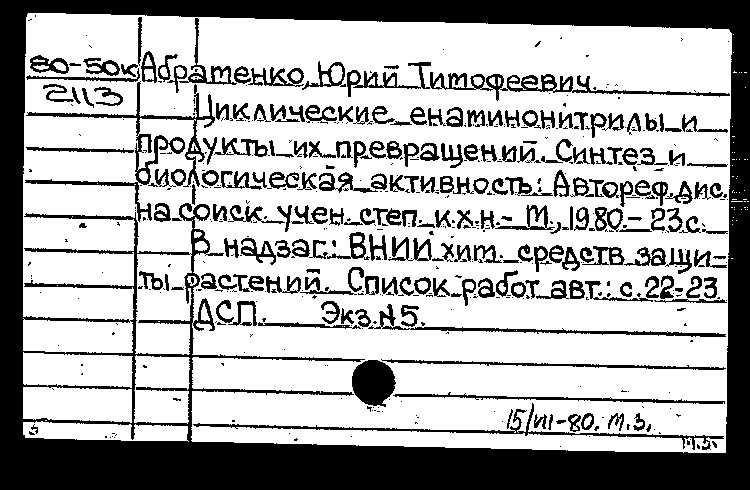 80-50к Абратенко, Юрий Тимофеевич.
2113
Циклические енаминонитрилы и
продукты их превращений. Синтез и
биологическая активность: Автореф. дис.
на соиск. учен. степ. к.х.н. - М., 1980. - 23 с.
В надзаг.: ВНИИ хим. средств защи-
ты растений. Список работ авт.: с. 22-23
ДСП. Экз. №5.
15/VII-80. т.з.